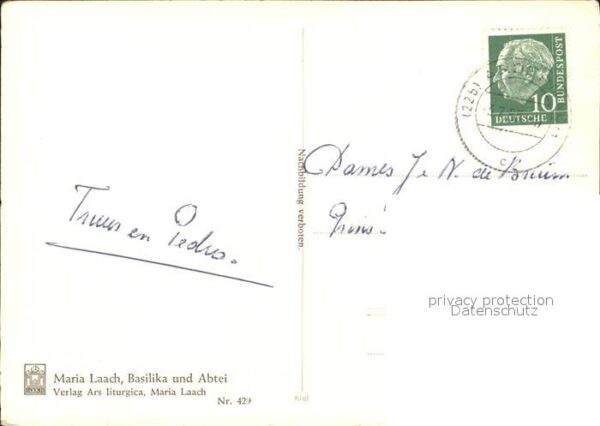 BUNDESPOST
10
DEUTSCHE
(22b)
c
Dames J. & N. de
Truus en Pedro.
Nachbildung verboten.
privacy protection
Datenschutz
Maria Laach, Basilika und Abtei
Verlag Ars liturgica, Maria Laach
Nr. 429